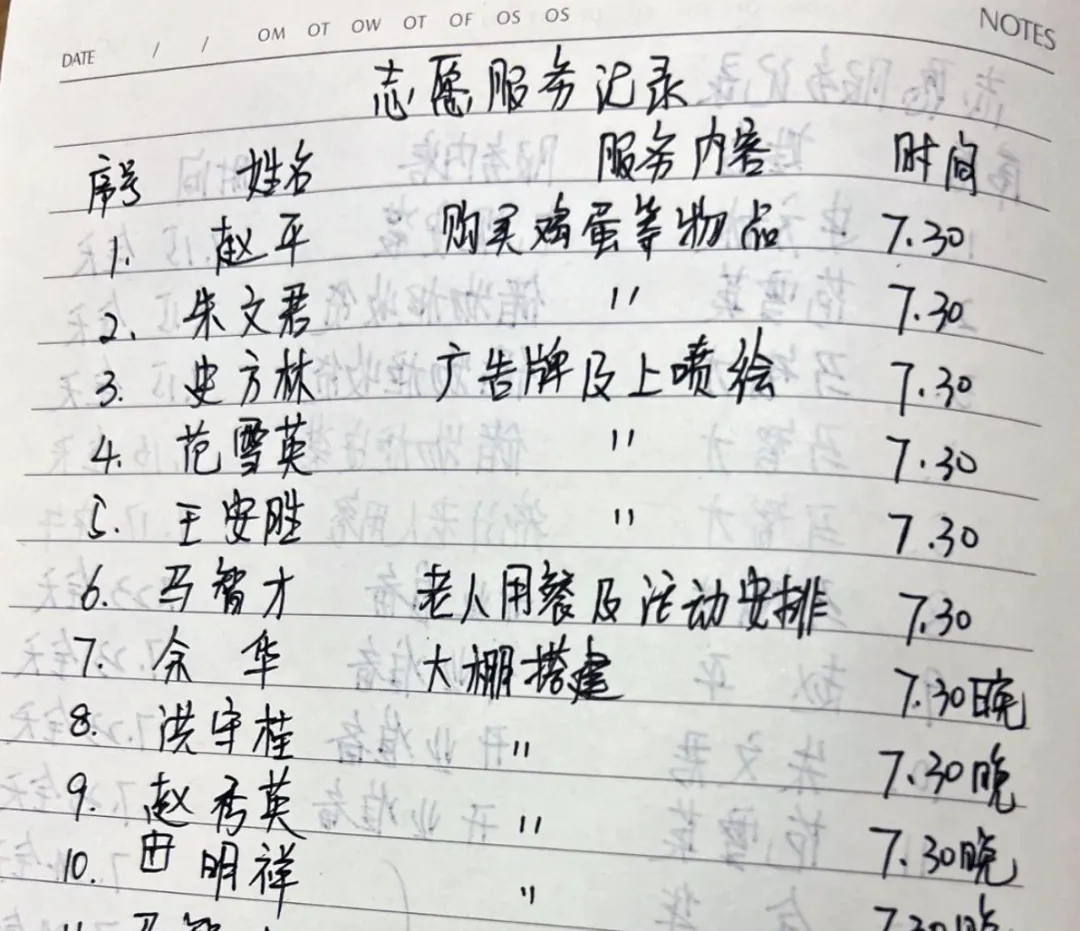 DATE / / OM OT OW OT OF OS OS NOTES
志愿服务记录
序号 姓名 服务内容 时间
1. 赵平 购买鸡蛋等物品 7.30
2. 朱文君 〃 7.30
3. 史方林 广告牌及上喷绘 7.30
4. 范雪英 〃 7.30
5. 王安胜 〃 7.30
6. 马智才 老人用餐及活动安排 7.30
7. 余华 大棚搭建 7.30晚
8. 洪守桂 〃 7.30晚
9. 赵秀英 〃 7.30晚
10. 田明祥 〃 7.30晚
7.30晚